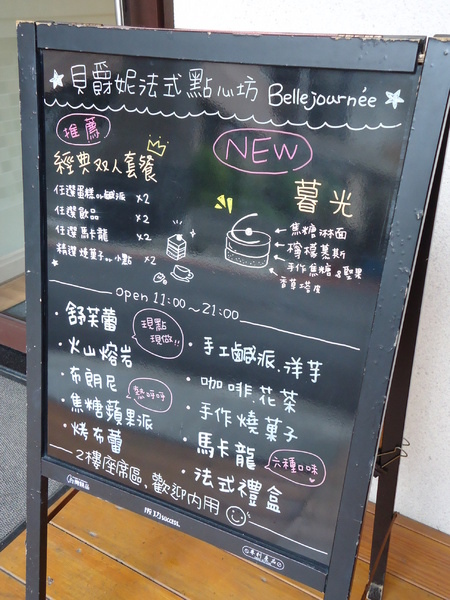 貝爵妮法式點心坊 Bellejournée
推薦
經典双人套餐
任選蛋糕or鹹派 x2
任選飲品 x2
任選馬卡龍 x2
精選燒菓子or小點 x2
NEW
暮光
焦糖淋面
檸檬慕斯
手作焦糖&堅果
香草塔皮
open 11:00~21:00
・舒芙蕾
現點
現做!!
・火山熔岩
・布朗尼
熱呼呼
・焦糖蘋果派
・烤布蕾
・手工鹹派.洋芋
・咖啡.花茶
・手作燒菓子
・馬卡龍
六種口味
・法式禮盒
2樓座席區,歡迎內用